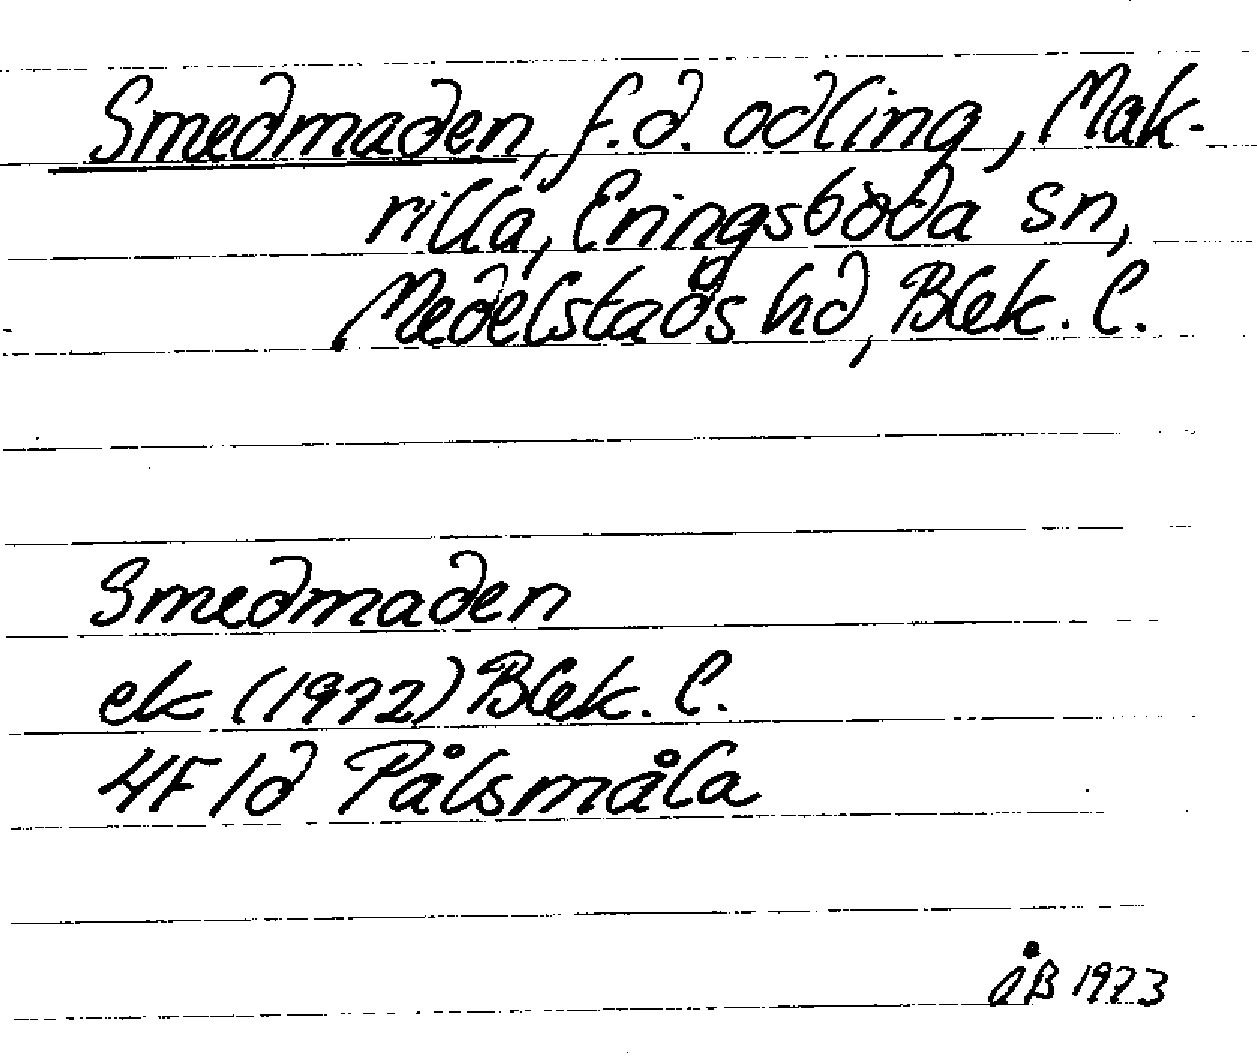 Smedmaden, f.d. odling, Mak-
rilla, Eringsboda sn,
Medelstads hd, Blek. l.
Smedmaden
ek (1972) Blek. l.
4F 1d Pålsmåla
ÅB 1973